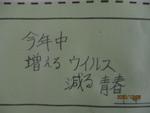 今年中
増える ウイルス
減る 青春